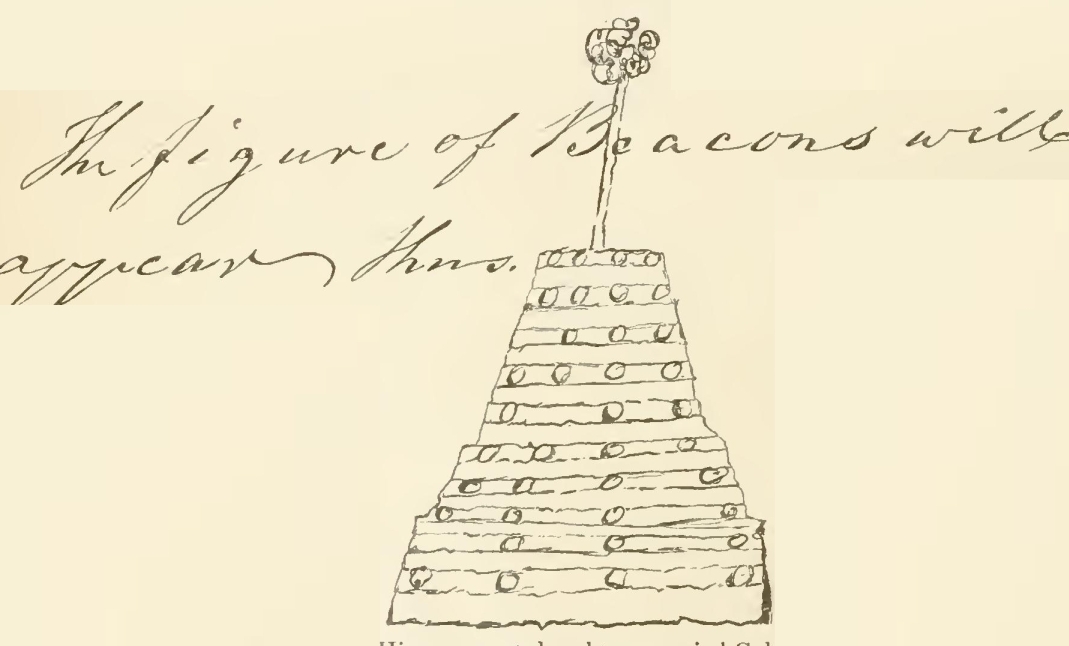 The figure of Beacons will
appear thus.